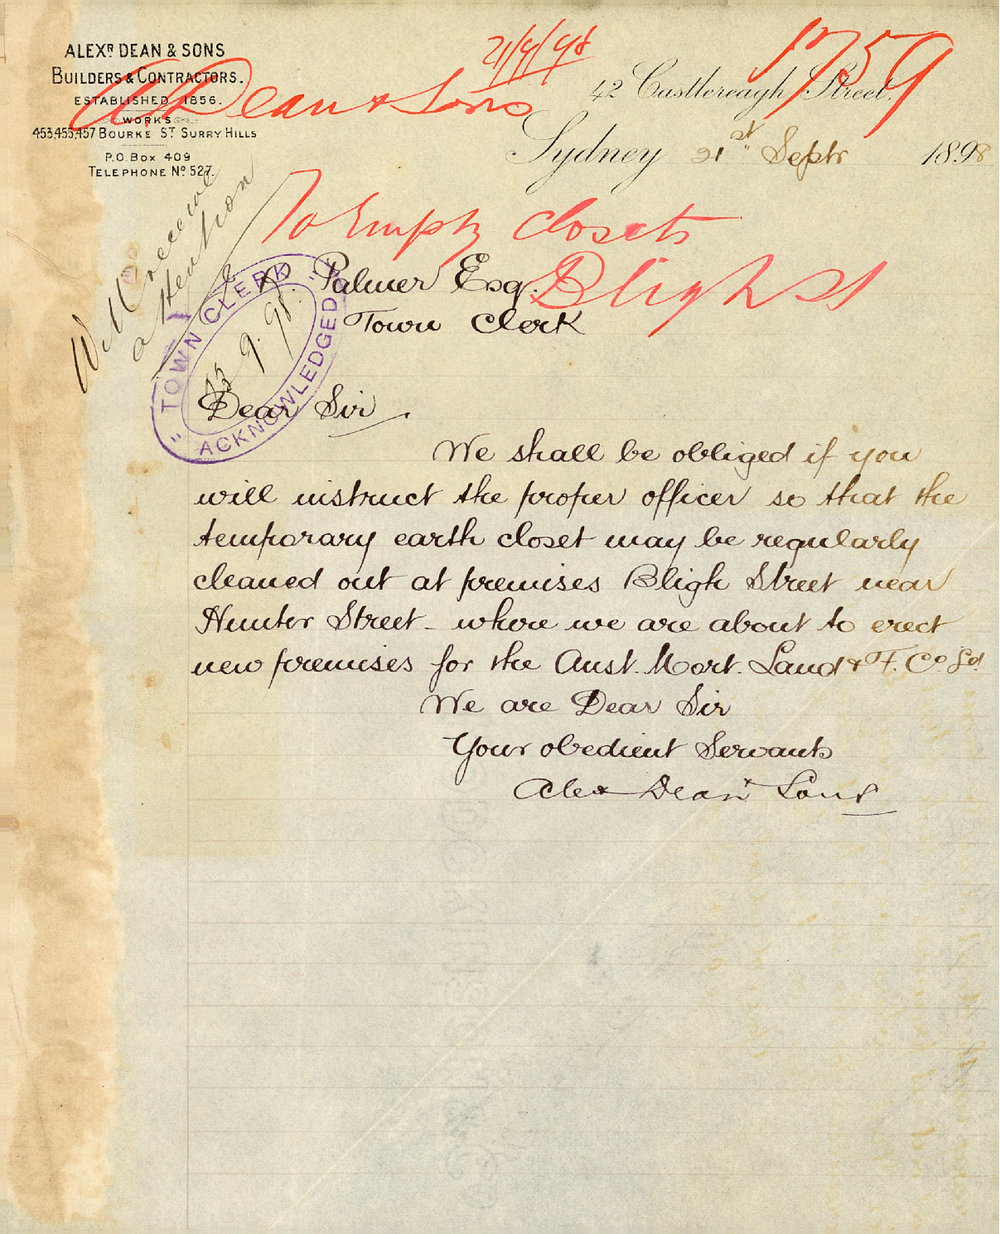 ALEXR DEAN & SONS
BUILDERS & CONTRACTORS.
ESTABLISHED 1856.
WORKS
453,455,457 BOURKE ST SURRY HILLS
P.O. BOX 409
TELEPHONE No 527.
21/9/98
1759
A Dean & Sons
42 Castlereagh Street.
Sydney 21st Septr 1898
To Empty Closets
Bligh St
Will receive
attention
Palmer Esq.
Town Clerk
"TOWN CLERK"
23.9.98.
ACKNOWLEDGED
Dear Sir,
We shall be obliged if you
will instruct the proper officer so that the
temporary earth closet may be regularly
cleaned out at premises Bligh Street near
Hunter Street - where we are about to erect
new premises for the Aust. Mort. Land & F. Co Ld
We are Dear Sir
Your obedient Servants
Alex Dean & Sons